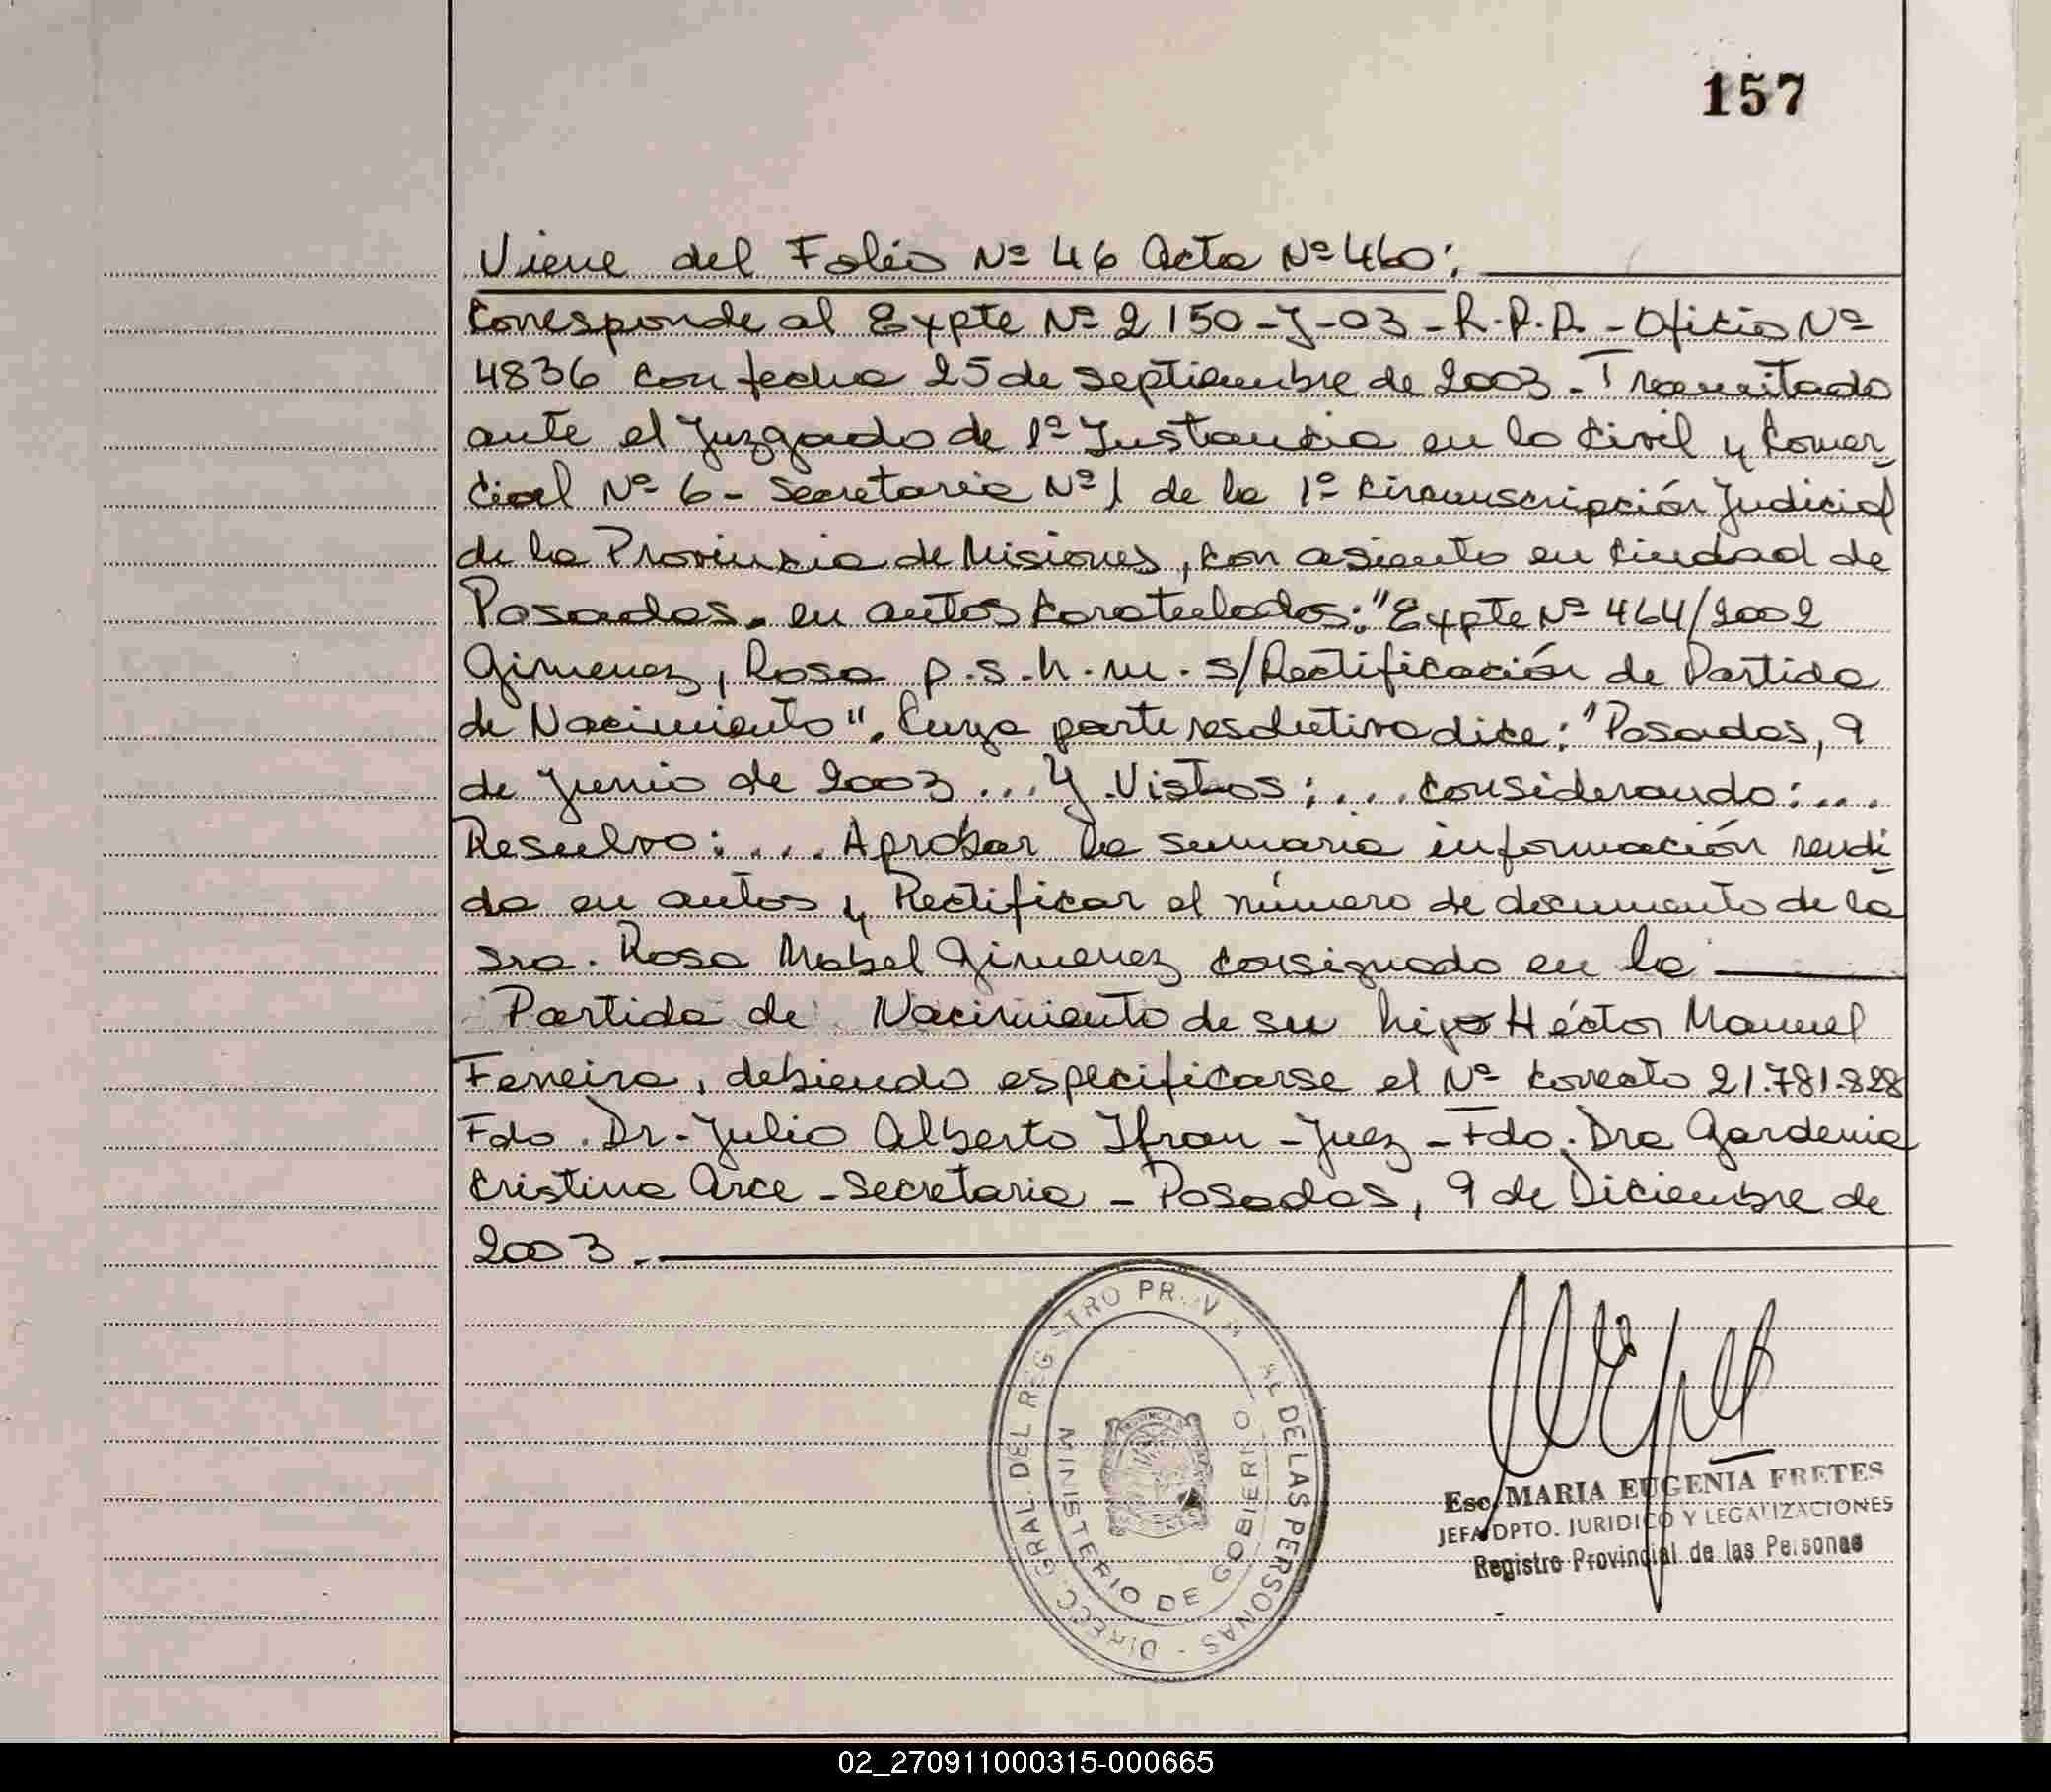 157
Viene del Folio Nº 46 Acta Nº 460:
Corresponde al Expte Nº 2150-J-03-R.P.P.-Oficio Nº
4836 con fecha 25 de septiembre de 2003-Tramitado
ante el Juzgado de 1º Instancia en lo Civil y Comer_
cial Nº 6-Secretaria Nº1 de la 1º Circunscripción Judicial
de la Provincia de Misiones, con asiento en Ciudad de
Posadas. en autos Caratulados: "Expte Nº 464/2002
Gimenez, Rosa p.s.h.m. s/Rectificación de Partida
de Nacimiento". Cuya parte resolutiva dice: "Posadas, 9
de Junio de 2003 ... Y Vistos: ... Considerando: ...
Resuelvo: ... Aprobar la sumaria información rendi_
da en autos y Rectificar el número de documento de la
Sra. Rosa Mabel Gimenez consignado en la
Partida de Nacimiento de su hijo Héctor Manuel
Ferreira, debiendo especificarse el Nº correcto 21.781.828
Fdo. Dr. Julio Alberto Ifran - Juez - Fdo. Dra Gardenia
Cristina Arce - Secretaria - Posadas, 9 de Diciembre de
2003.-
DIRECC. GRAL. DEL REGISTRO DE LAS PERSONAS -
MINISTERIO DE GOBIERNO
Esc. MARIA EUGENIA FRETES
JEFA DPTO. JURIDICO Y LEGALIZACIONES
Registro Provincial de las Personas
02_270911000315-000665